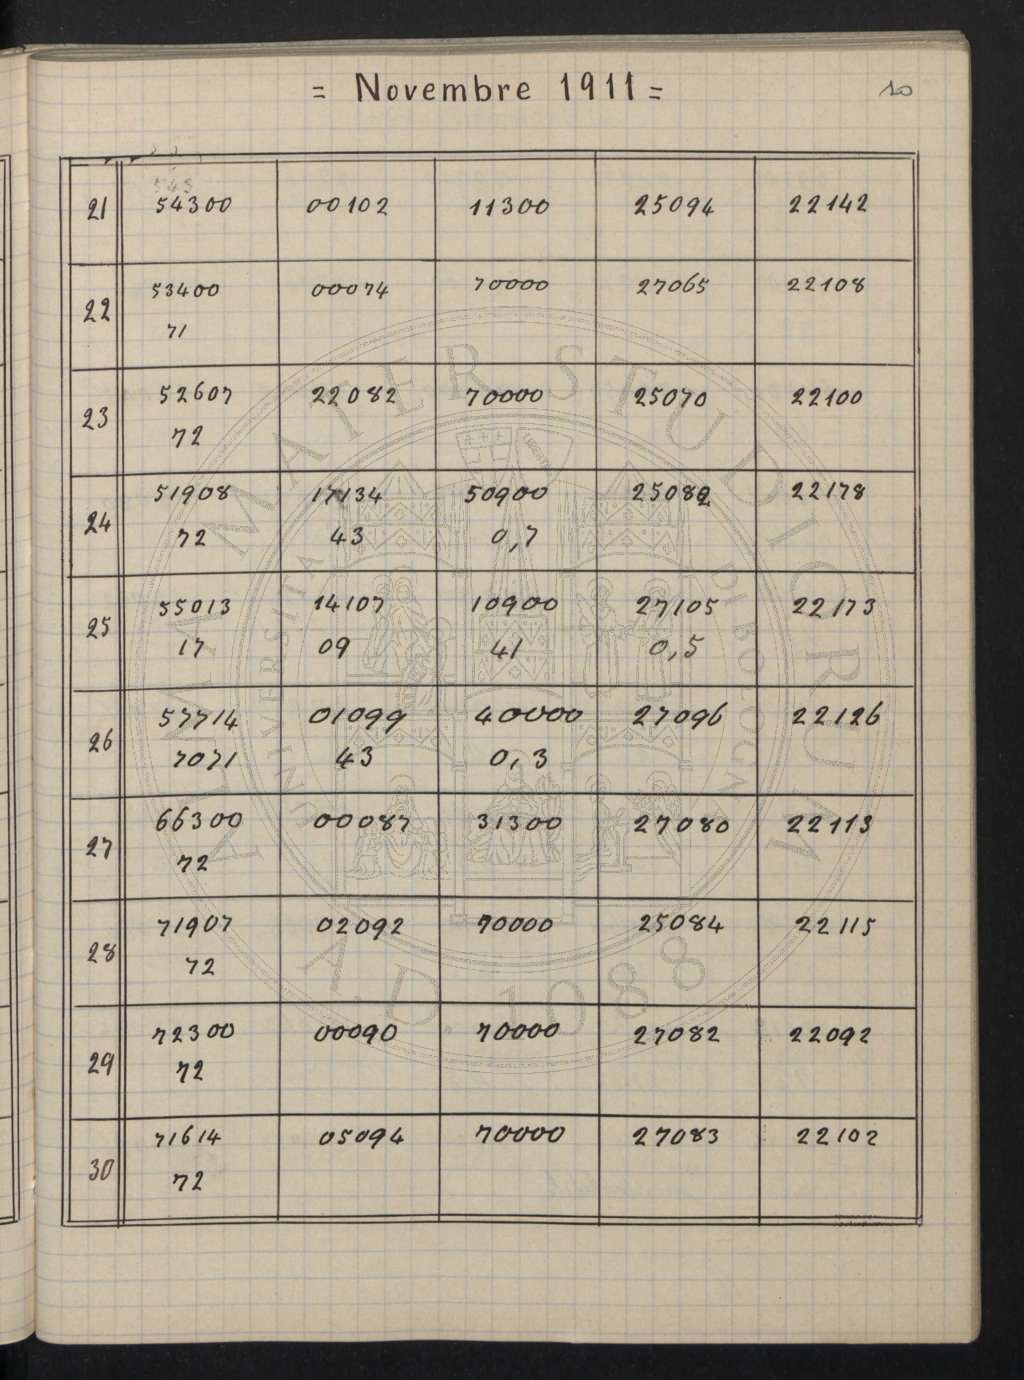 = Novembre 1911 =
10
21 54300 00102 11300 25094 22142
22 53400 00074 70000 27065 22108
71
23 52607 22082 70000 25070 22100
72
24 51908 17134 50900 25082 22178
72 43 0,7
25 55013 14107 10900 27105 22173
17 09 41 0,5
26 57714 01099 40000 27096 22126
7071 43 0,3
27 66300 00087 31300 27080 22113
72
28 71907 02092 70000 25084 22115
72
29 72300 00090 70000 27082 22092
72
30 71614 05094 70000 27083 22102
72
ALMA MATER STUDIORUM
UNIVERSITÀ DI BOLOGNA
A.D. 1088